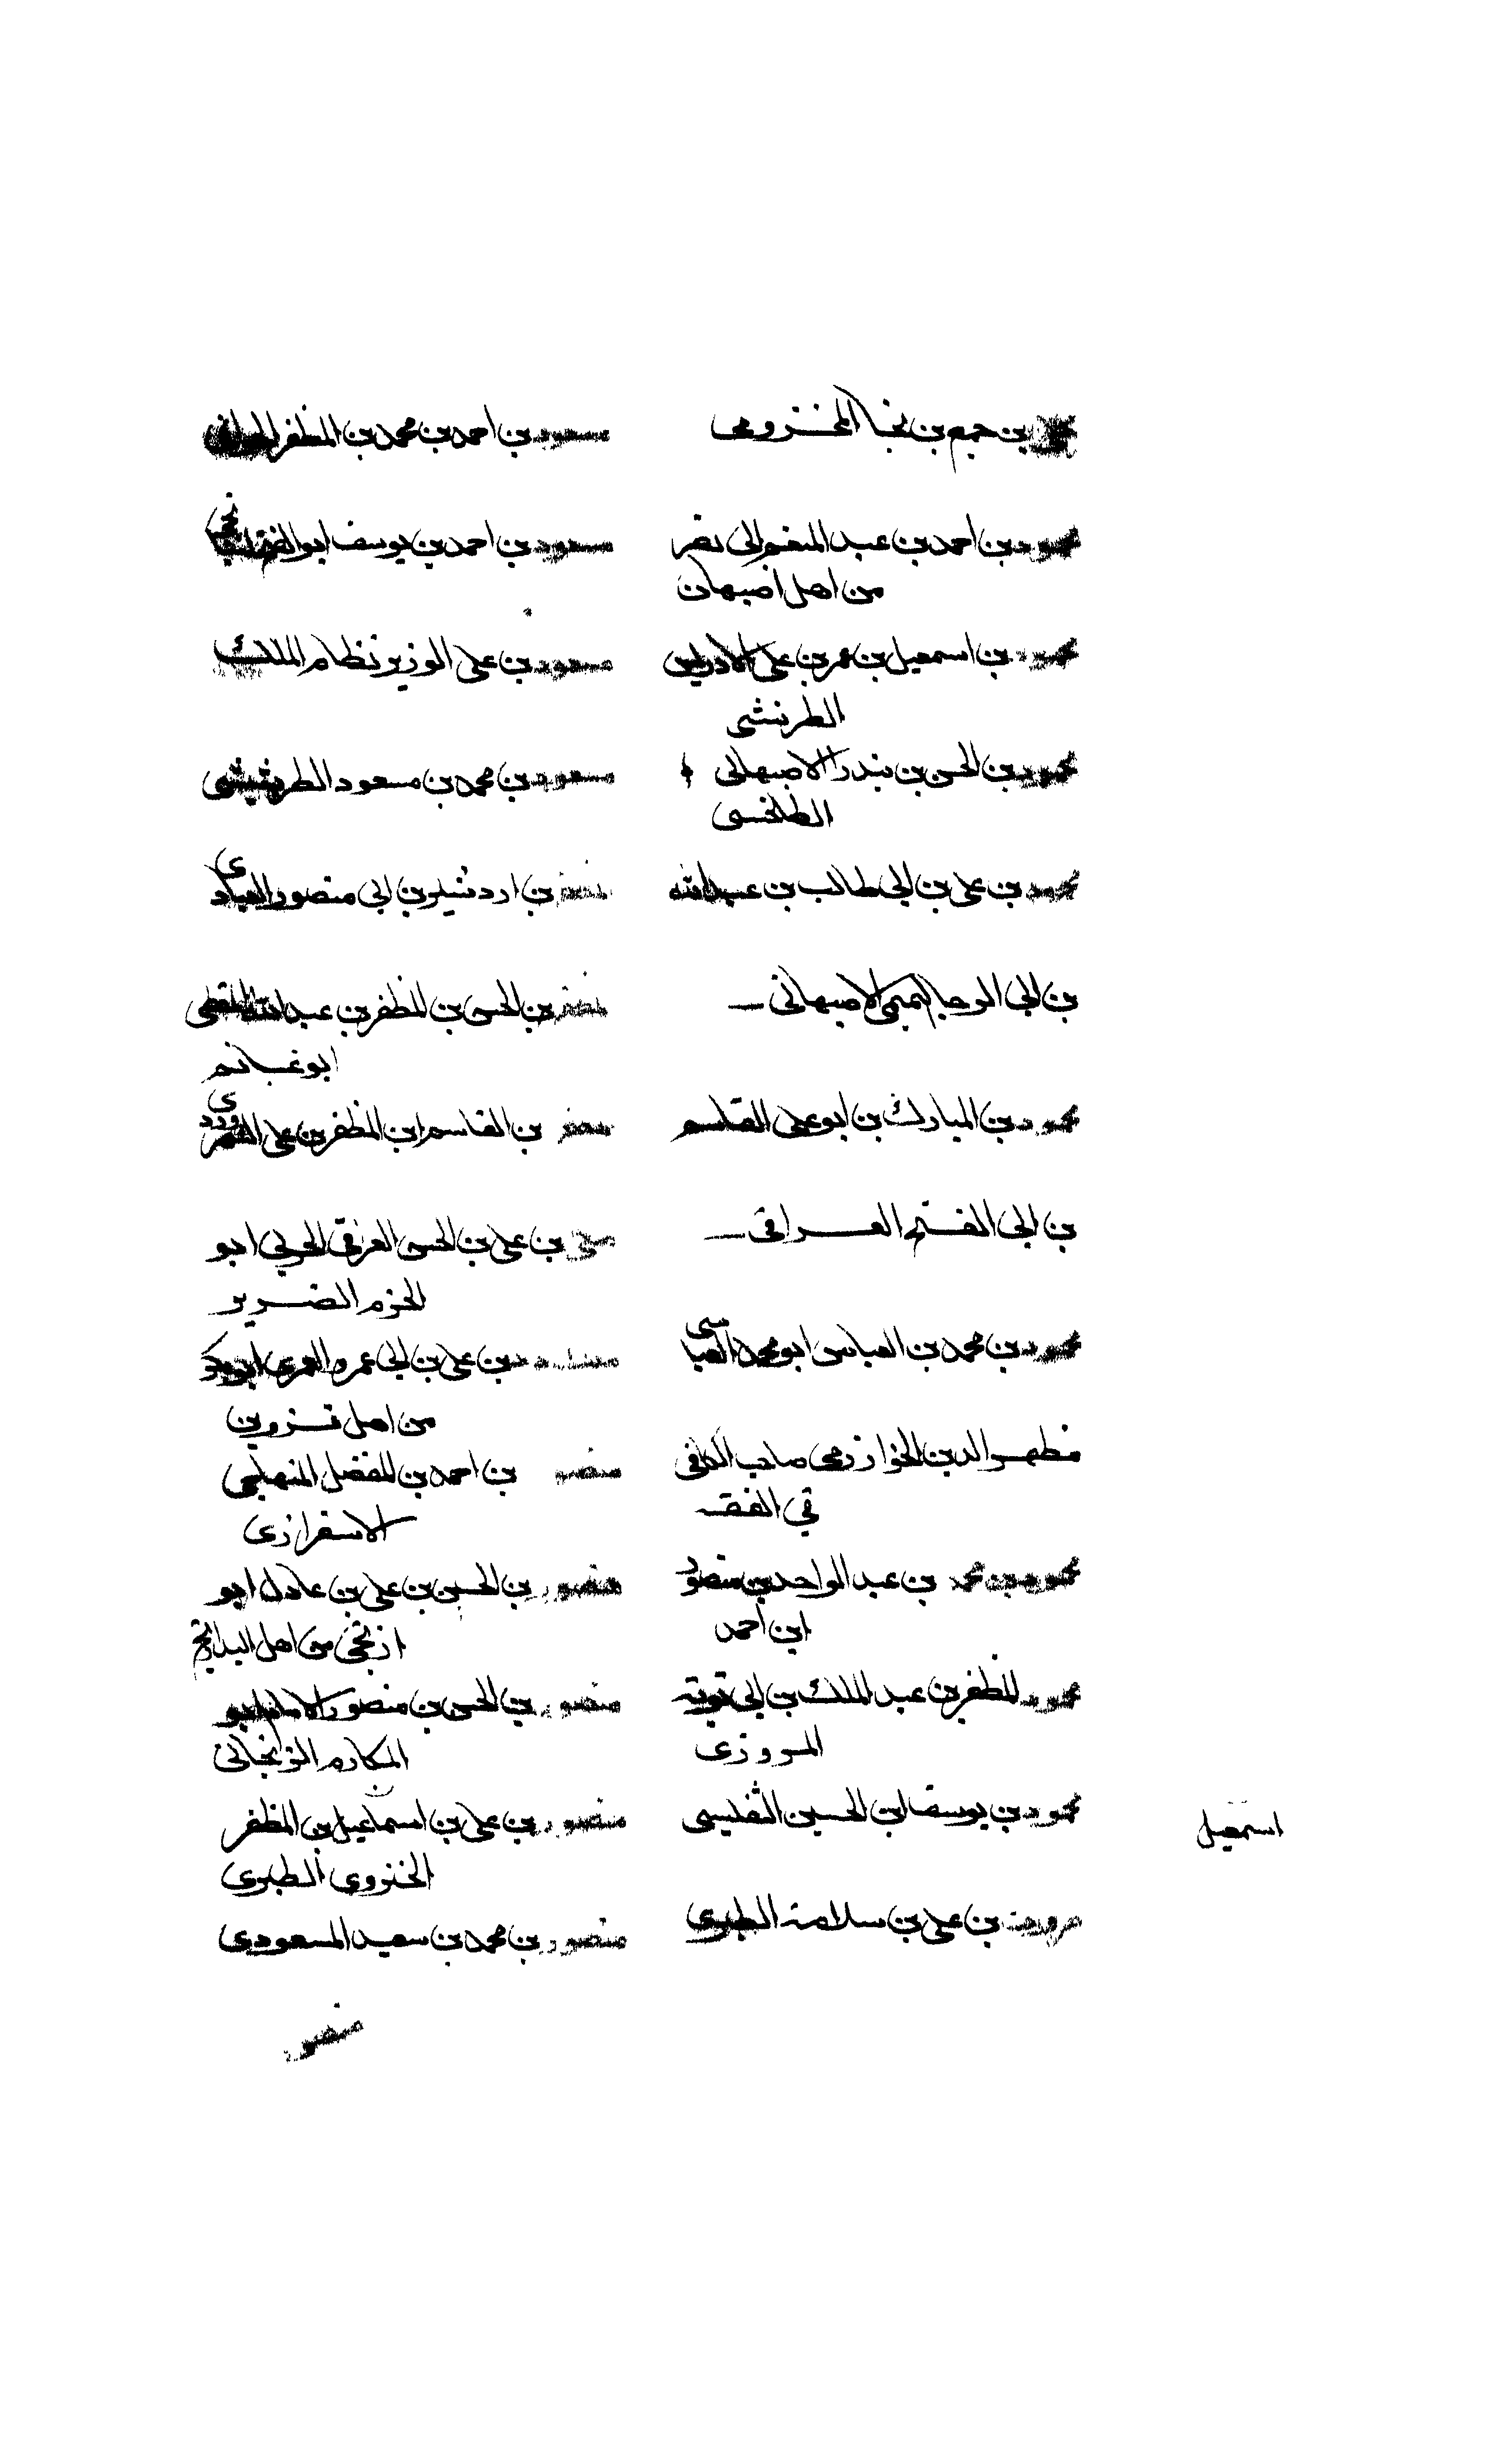 بن جميع بن نجا المخزومى
محمود بن احمد بن عبد المنعم ابى نصر
من اهل اصبهان
محمود بن اسمعيل بن عمر بن على الادريسى
الطرثيثى
محمود بن الحسن بن بندار الاصبهانى
الطلخى
محمود بن على بن ابى طالب بن عبد الله
بن ابى الرجا التميمى الاصبهانى
محمود بن المبارك بن ابو على القاسم
بن ابى الفتح العراقى
محمود بن محمد بن العباس ابو محمد العباسى
مظهر الدين الخوارزمى صاحب الكافى
في الفقه
محمود بن محمد بن عبد الواحد بن منصور
ابن احمد
محمود المظفر بن عبد الملك بن ابى توبة
المروزى
محمود بن يوسف ابن الحسين التفليسى
بن على بن سلامة الطبرى
اسمعيل
مسعود بن احمد بن محمد بن المظفر
مسعود بن احمد بن يوسف ابو الفتح
مسعود بن على الوزير نظام الملك
مسعود بن محمد بن مسعود الطريثيثى
المظفر بن اردشير بن ابى منصور العبادى
مظفر بن الحسن بن المظفر بن عبد الله
ابو غانم
مظفر بن القاسم ابن المظفر بن على الشهرزورى
بن على بن الحسن الغزنى الحربى ابو
الحزم الضرير
بن على بن ابى عمرو
من اهل قزوين
منصور بن احمد بن المفضل المنهاجى
الاسفزازى
منصور بن الحسين بن على بن عادل ابو
من اهل
منصور بن الحسن بن منصور الامام ابو
المكارم الزنجانى
منصور بن على بن اسماعيل بن المظفر
الطبرى
منصور بن محمد بن سعيد المسعودى
منصور